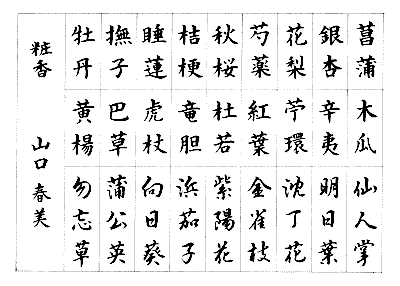 菖蒲 木瓜 仙人掌
銀杏 辛夷 明日葉
花梨 苧環 沈丁花
芍薬 紅葉 金雀枝
秋桜 杜若 紫陽花
桔梗 竜胆 浜茄子
睡蓮 虎杖 向日葵
撫子 巴草 蒲公英
牡丹 黄楊 勿忘草
粧香 山口春美